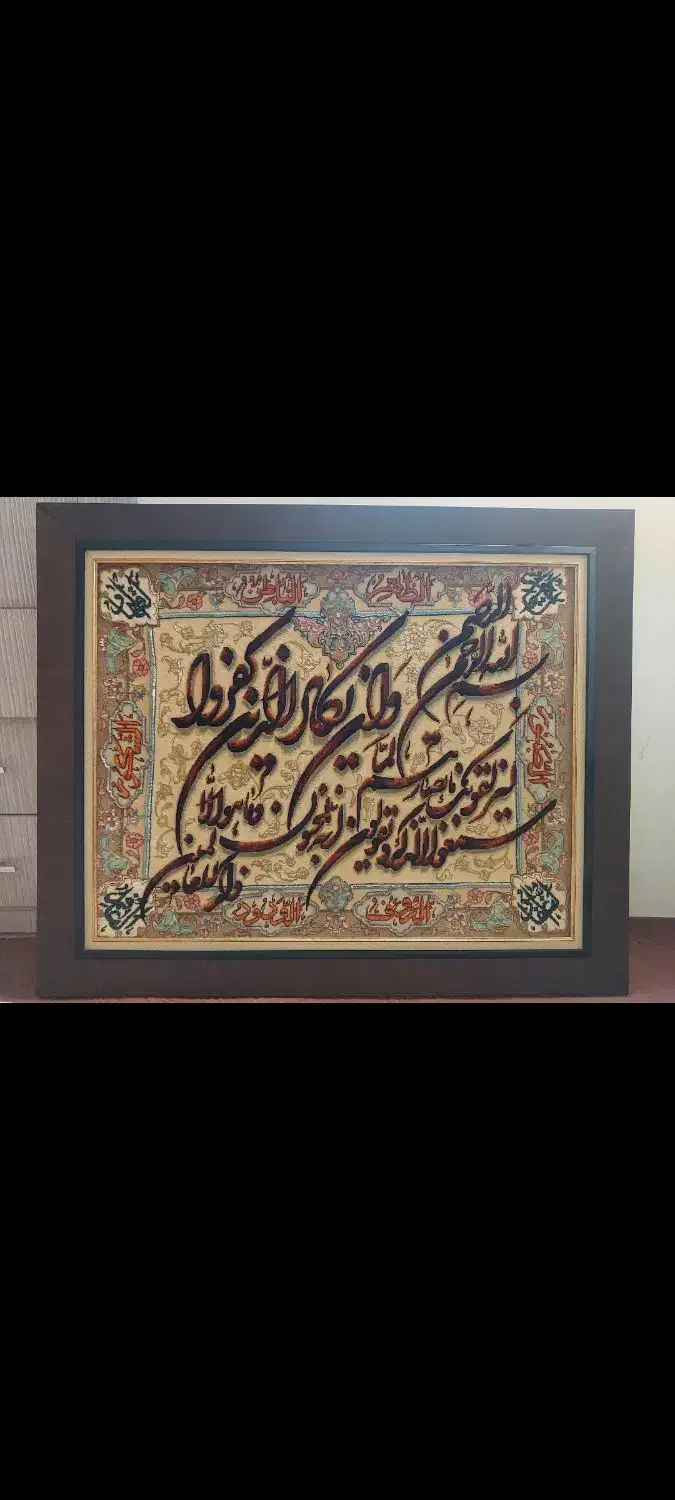 الظاهر
الباطن
بسم الله الرحمن الرحیم
وان یکاد الذین کفروا
لیزلقونک بابصارهم لما
سمعوا الذکر و یقولون انه لمجنون
و ما هو الا
ذکر للعالمین
الشکور
الرؤف
الودود